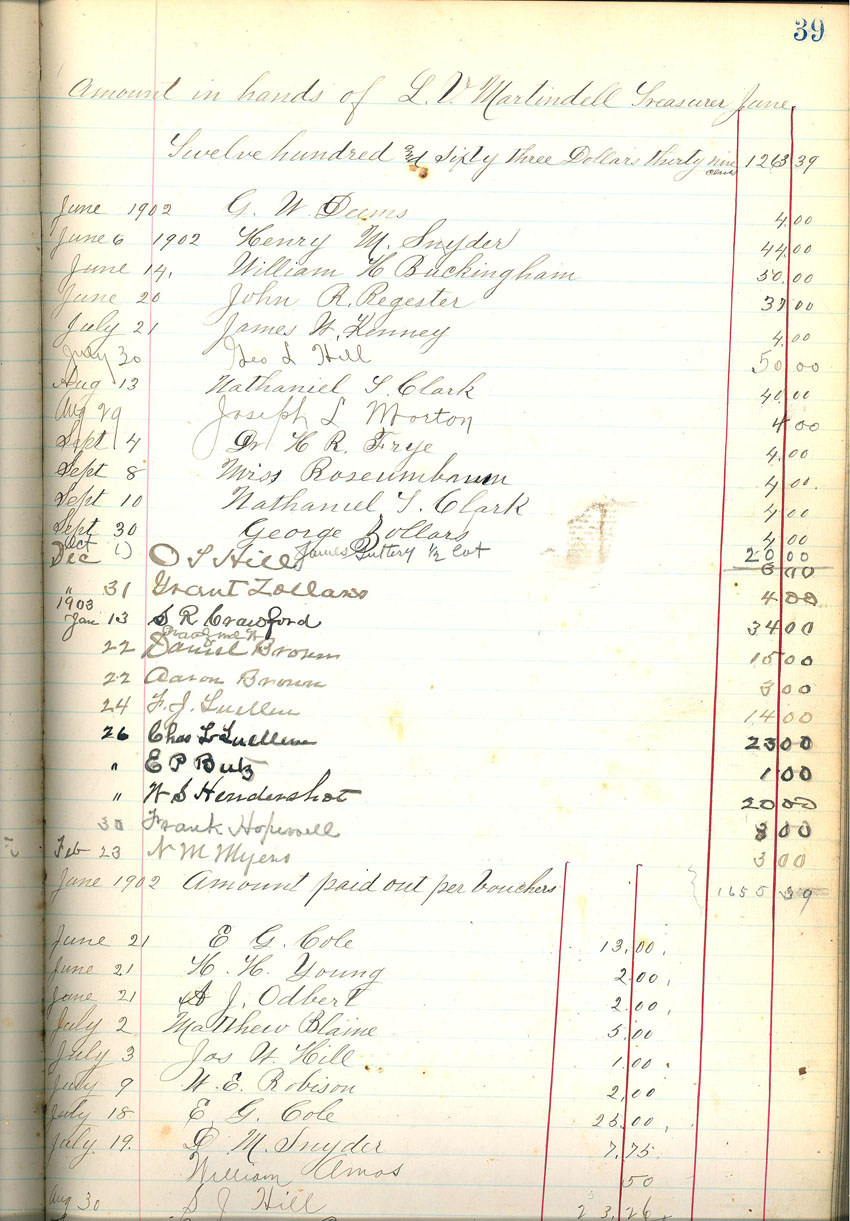 39
Amount in hands of L. V. Martindell Treasurer June
Twelve hundred and Sixty three Dollars thirty nine cents 1263 39
June 1902 G. W. Deems 4.00
June 6 1902 Henry M. Snyder 44.00
June 14, William H Buckingham 50.00
June 20 John R. Regester 37 00
July 21 James W. Kenney 4.00
July 30 Geo L Hill 50 00
Aug 13 Nathaniel S. Clark 40.00
Aug 29 Joseph L Morton 4 00
Sept 4 Dr H R. Frye 4.00
Sept 8 Miss Rosenmbaum 4 00.
Sept 10 Nathaniel S. Clark 4 00
Sept 30 George Zollars 4 00
Oct James Buttery 1/2 Lot 20 00
Dec O S Hill 6 00
" 31 Grant Zollars 4 00
1903
Jan 13 S R Crawford 34 00
22 Daniel Brown 15 00
22 Aaron Brown 3 00
24 F. J. Luellen 14 00
26 Chas L Luellen 23 00
" E P Butz 1 00
" W S Hendershot 20 00
30 Frank Hopewell 8 00
Feb 23 N M Myers 3 00
June 1902 Amount paid out per vouchers 1655 39
June 21 E G. Cole 13.00,
June 21 H. H. Young 2.00,
June 21 A J. Odbert 2.00,
July 2 Matthew Blaine 5.00
July 3 Jos W. Hill 1.00
July 9 W. E. Robison 2,00
July 18 E. G. Cole 25.00,
July. 19. D M. Snyder 7.75
William Amos 50
Aug 30 S J Hill 23.26